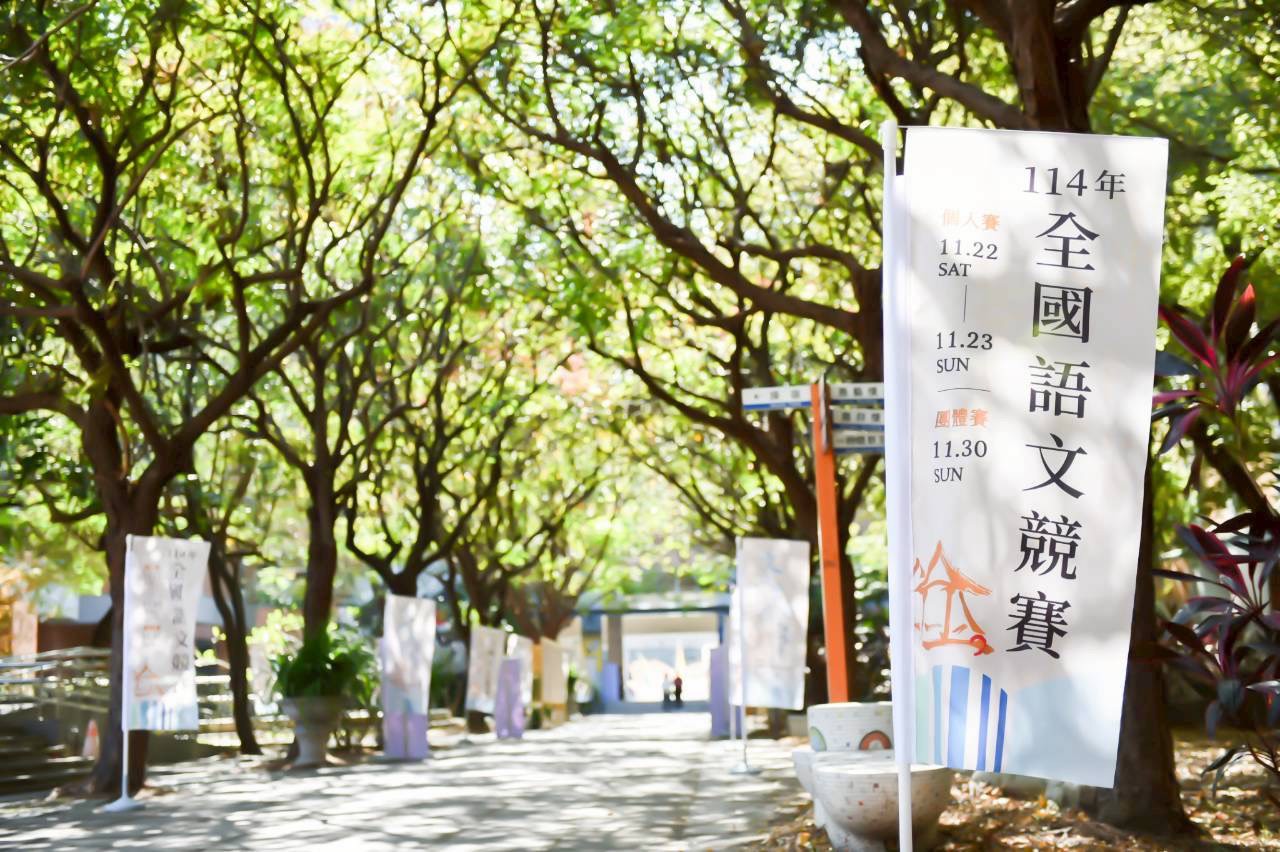 114年
全國語文競賽
個人賽
11.22
SAT
11.23
SUN
團體賽
11.30
SUN
全國語文競